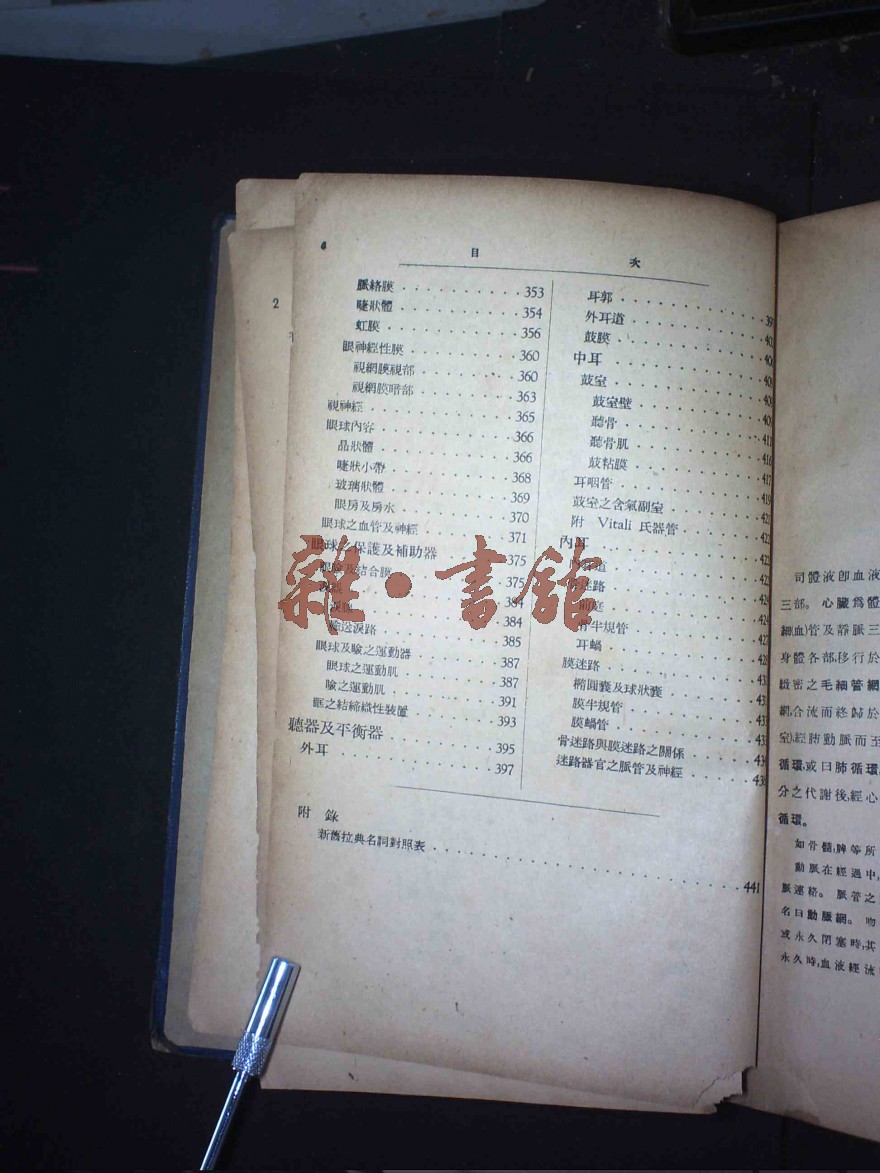 4 目 次
脈絡膜 353
睫狀體 354
虹膜 356
眼神經性膜 360
視網膜視部 360
視網膜暗部 363
視神經 365
眼球內容 366
晶狀體 366
睫狀小帶 368
玻璃狀體 369
眼房及房水 370
眼球之血管及神經 371
眼球之保護及補助器 375
眼瞼及結合膜 375
384
384
385
眼球及瞼之運動器 387
眼球之運動肌 387
瞼之運動肌 391
眶之結締織性裝置 393
聽器及平衡器 395
外耳 397
耳郭
外耳道
鼓膜
中耳
鼓室
鼓室壁
聽骨
聽骨肌 416
鼓粘膜 417
耳咽管 419
鼓室之含氣副室 421
附 Vitali 氏器管 422
內耳
骨迷路
前庭
骨半規管
耳蝸
膜迷路
橢圓囊及球狀囊
膜半規管
膜蝸管
骨迷路與膜迷路之關係
迷路器官之脈管及神經
附 錄
新舊拉典名詞對照表 441
雜·書館
2
司體液卽血液
三部。心臟爲體
細血)管及靜脈三
身體各部,移行於
緻密之毛細管網
網,合流而終歸於
室),經肺動脈而至
循環,或曰肺循環,
分之代謝後,經心
循環。
如骨髓,脾等所
動脈在經過中,
脈連絡。脈管之
名曰動脈網。吻
或永久閉塞時,其
永久時,血液經流